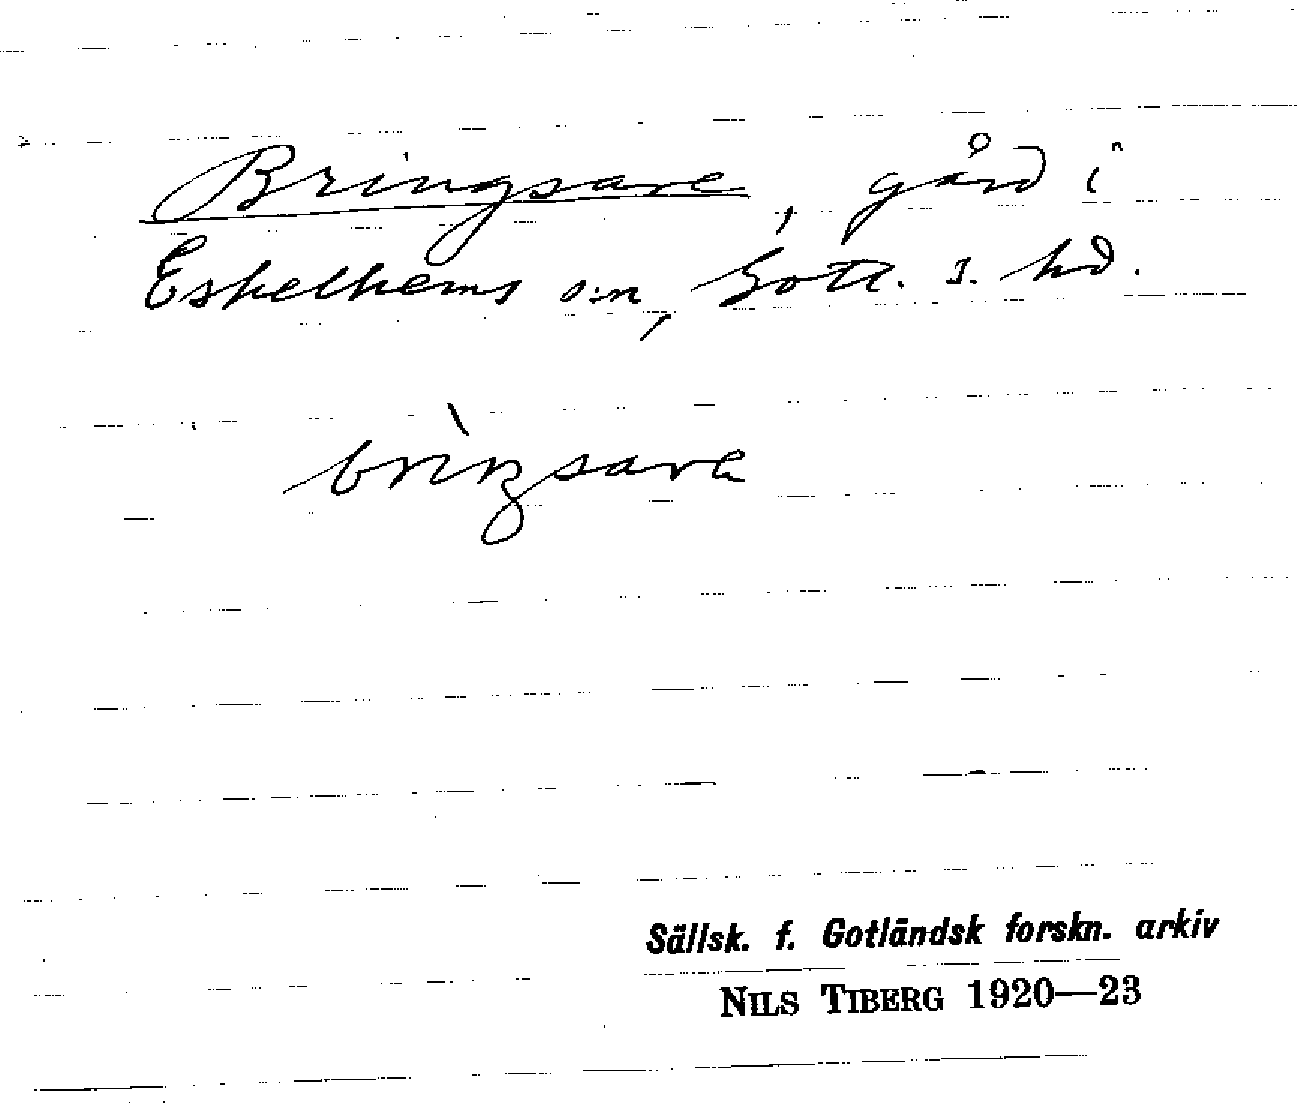 Bringsare, gård i
Eskelhems s:n, Gotl. s. hd.
brìŋsara
Sällsk. f. Gotländsk forskn. arkiv
NILS TIBERG 1920—23